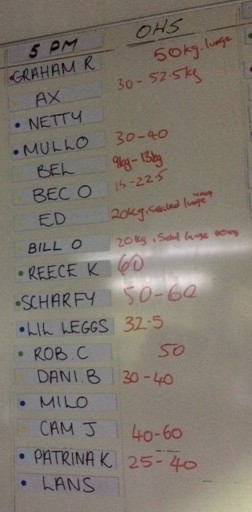 5 PM OHS
GRAHAM R 50kg. lunge
AX 30-52.5kg
NETTY
MULLO 30-40
BEL 9kg-13kg
BEC O 15-22.5
ED 20kg. seated lunge
BILL O 20kg. lunge
REECE K 60
SCHARFY 50-60
LIL LEGGS 32.5
ROB.C 50
DANI.B 30-40
MILO
CAM J 40-60
PATRINA K 25-40
LANS